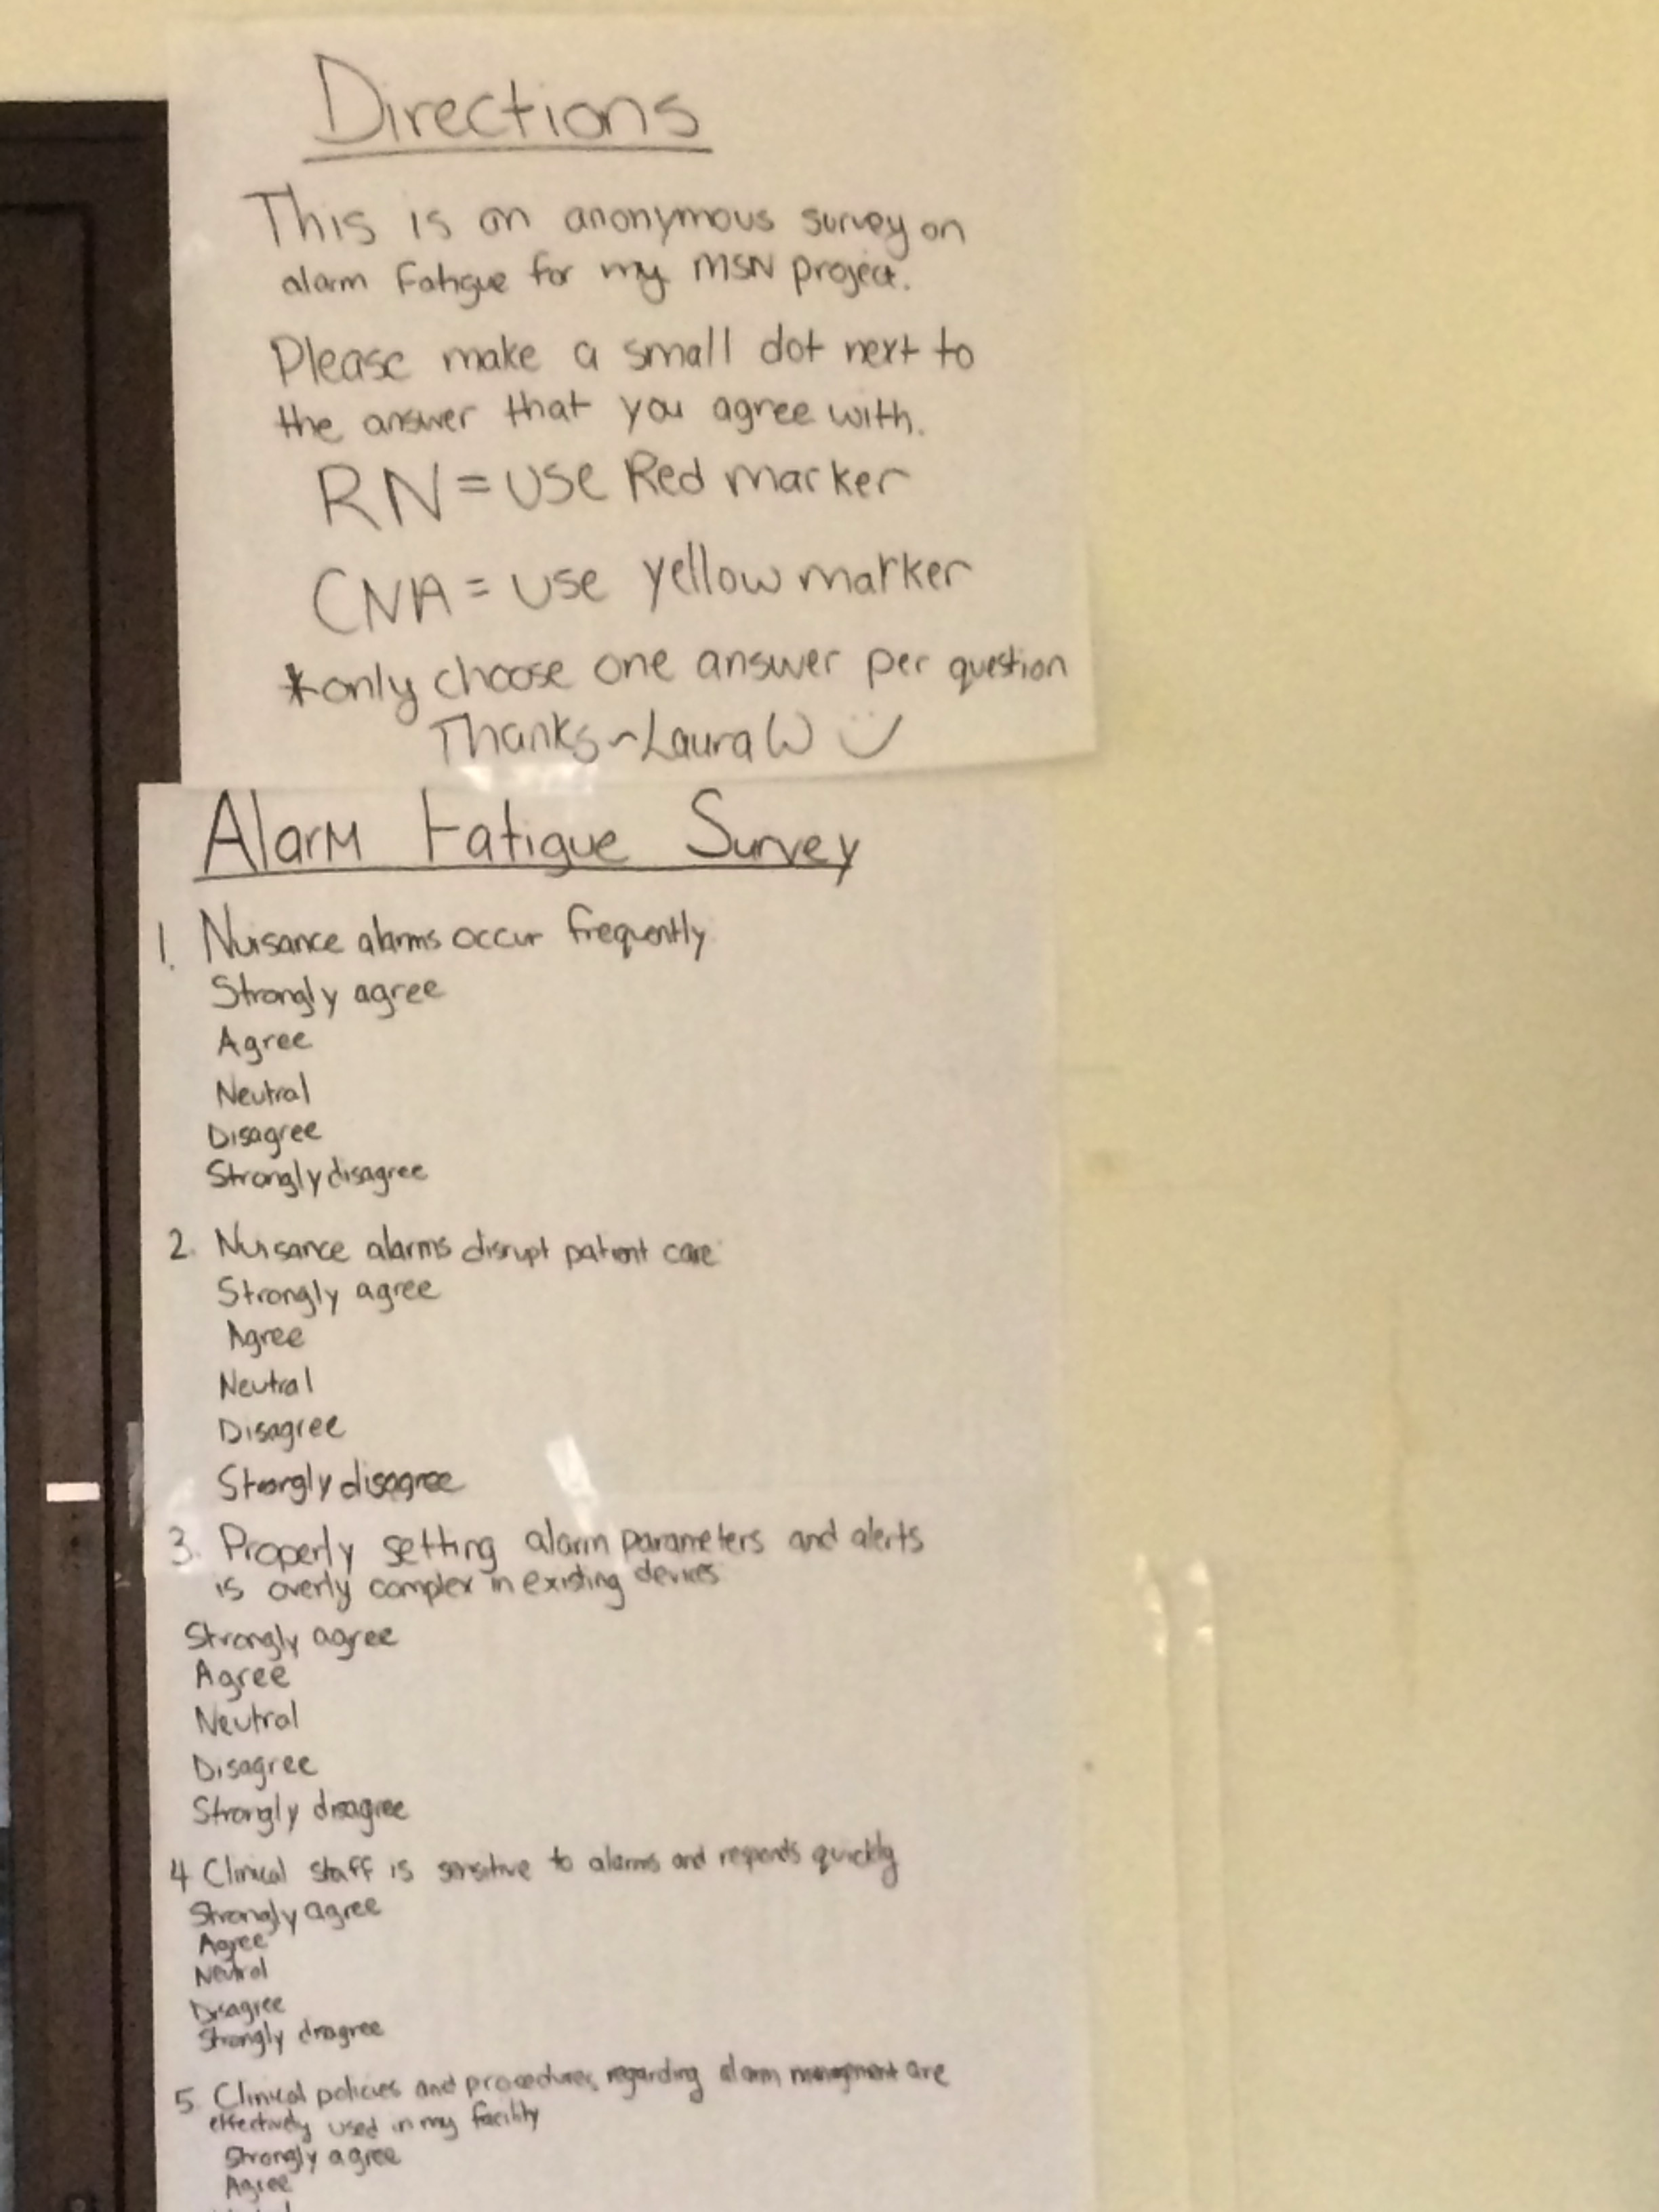 Directions
This is an anonymous survey on
alarm Fatigue for my MSN project.
Please make a small dot next to
the answer that you agree with.
RN = use Red marker
CNA = use yellow marker
*only choose one answer per question
Thanks ~ Laura W
Alarm Fatigue Survey
1. Nuisance alarms occur frequently
Strongly agree
Agree
Neutral
Disagree
Strongly disagree
2. Nuisance alarms disrupt patient care
Strongly agree
Agree
Neutral
Disagree
Strongly disagree
3. Properly setting alarm parameters and alerts
is overly complex in existing devices
Strongly agree
Agree
Neutral
Disagree
Strongly disagree
4 Clinical staff is sensitive to alarms and responds quickly
Strongly agree
Agree
Neutral
Disagree
Strongly disagree
5. Clinical policies and procedures regarding alarm management are
effectively used in my facility
Strongly agree
Agree